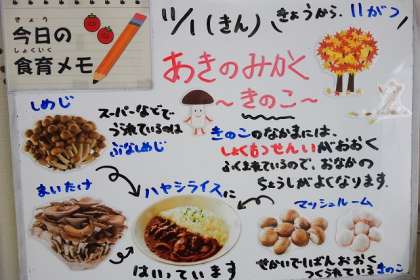 きょう
今日の
しょくいく
食育メモ
11/1(きん)
きょうから、11がつ
あきのみかく
～きのこ～
しめじ
スーパーなどで
うられているのは
ぶなしめじ
きのこのなかまには、
しょくもつせんいがおおく
ふくまれているので、おなかの
ちょうしがよくなります。
まいたけ
ハヤシライスに
はいっています
マッシュルーム
せかいでいちばんおおく
つくられているきのこ